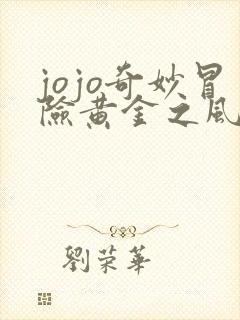 jojo奇妙冒
險黃金之風
劉荣華